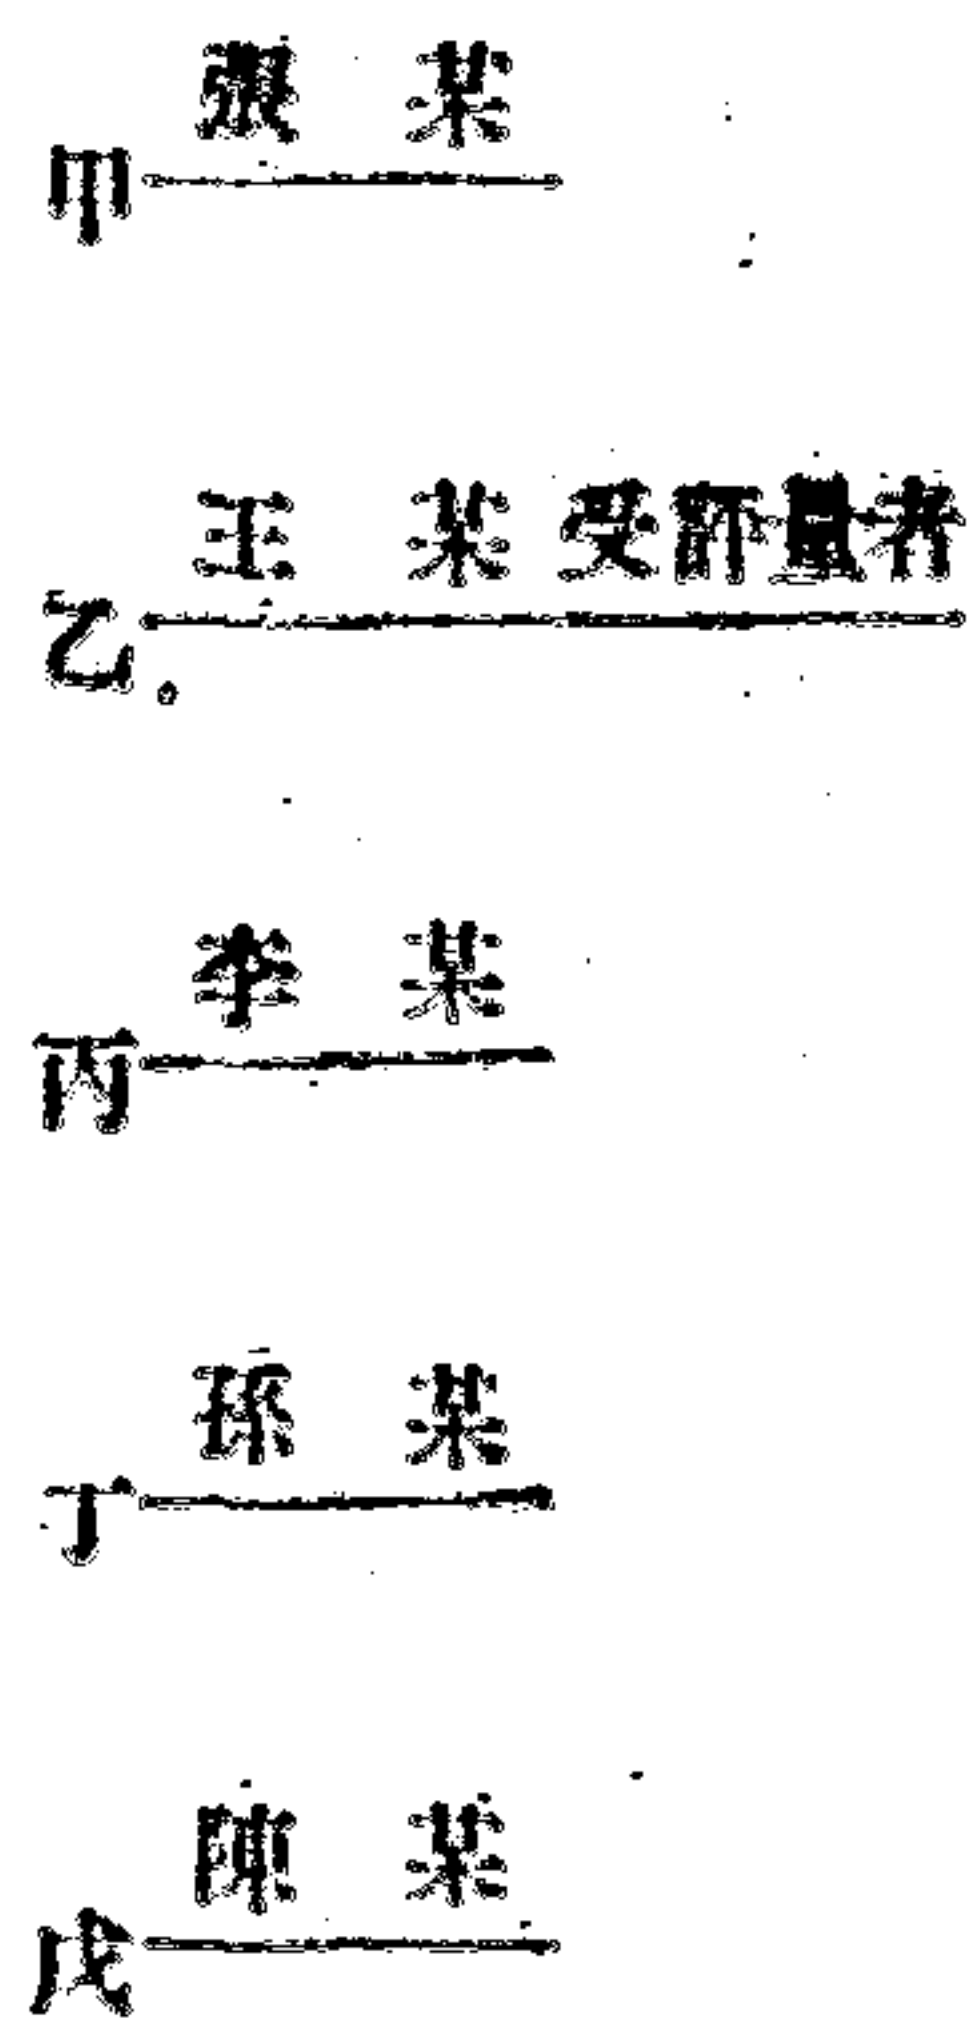 甲 張某
乙 王某受評量者
丙 李某
丁 孫某
戊 陳某